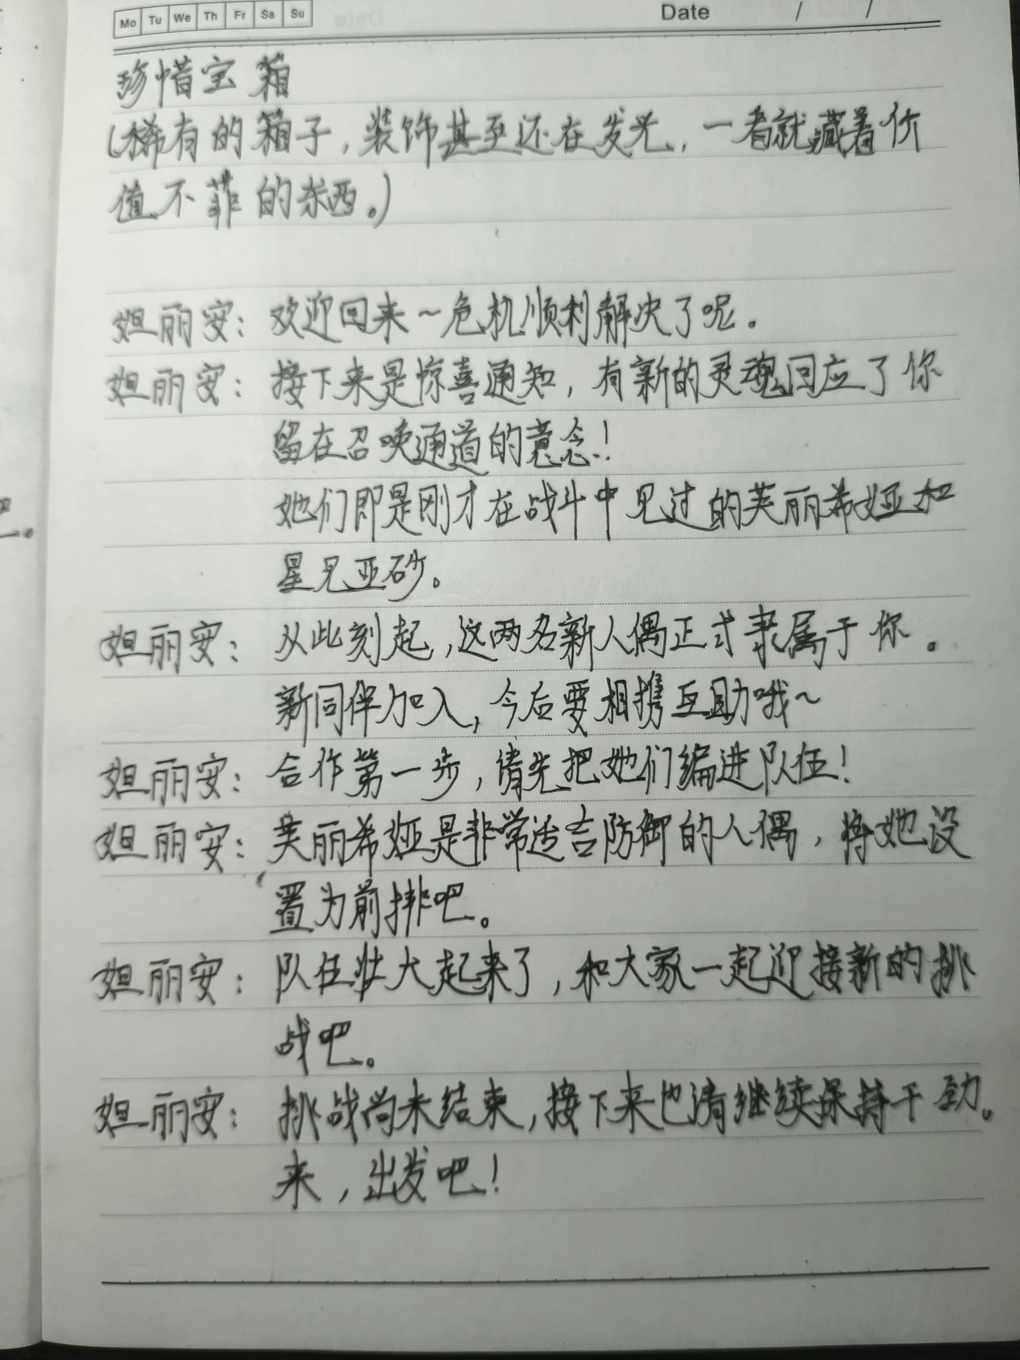 Mo Tu We Th Fr Sa Su Date / /
珍惜宝箱
(稀有的箱子，装饰甚至还在发光，一看就藏着价
值不菲的东西。)
妲丽安：欢迎回来～危机顺利解决了呢。
妲丽安：接下来是惊喜通知，有新的灵魂回应了你
留在召唤通道的意念！
她们即是刚才在战斗中见过的芙丽希娅和
星见亚砂。
妲丽安：从此刻起，这两名新人偶正式隶属于你。
新同伴加入，今后要相携互助哦～
妲丽安：合作第一步，请先把她们编进队伍！
妲丽安：芙丽希娅是非常适合防御的人偶，将她设
置为前排吧。
妲丽安：队伍壮大起来了，和大家一起迎接新的挑
战吧。
妲丽安：挑战尚未结束，接下来也请继续保持干劲。
来，出发吧！